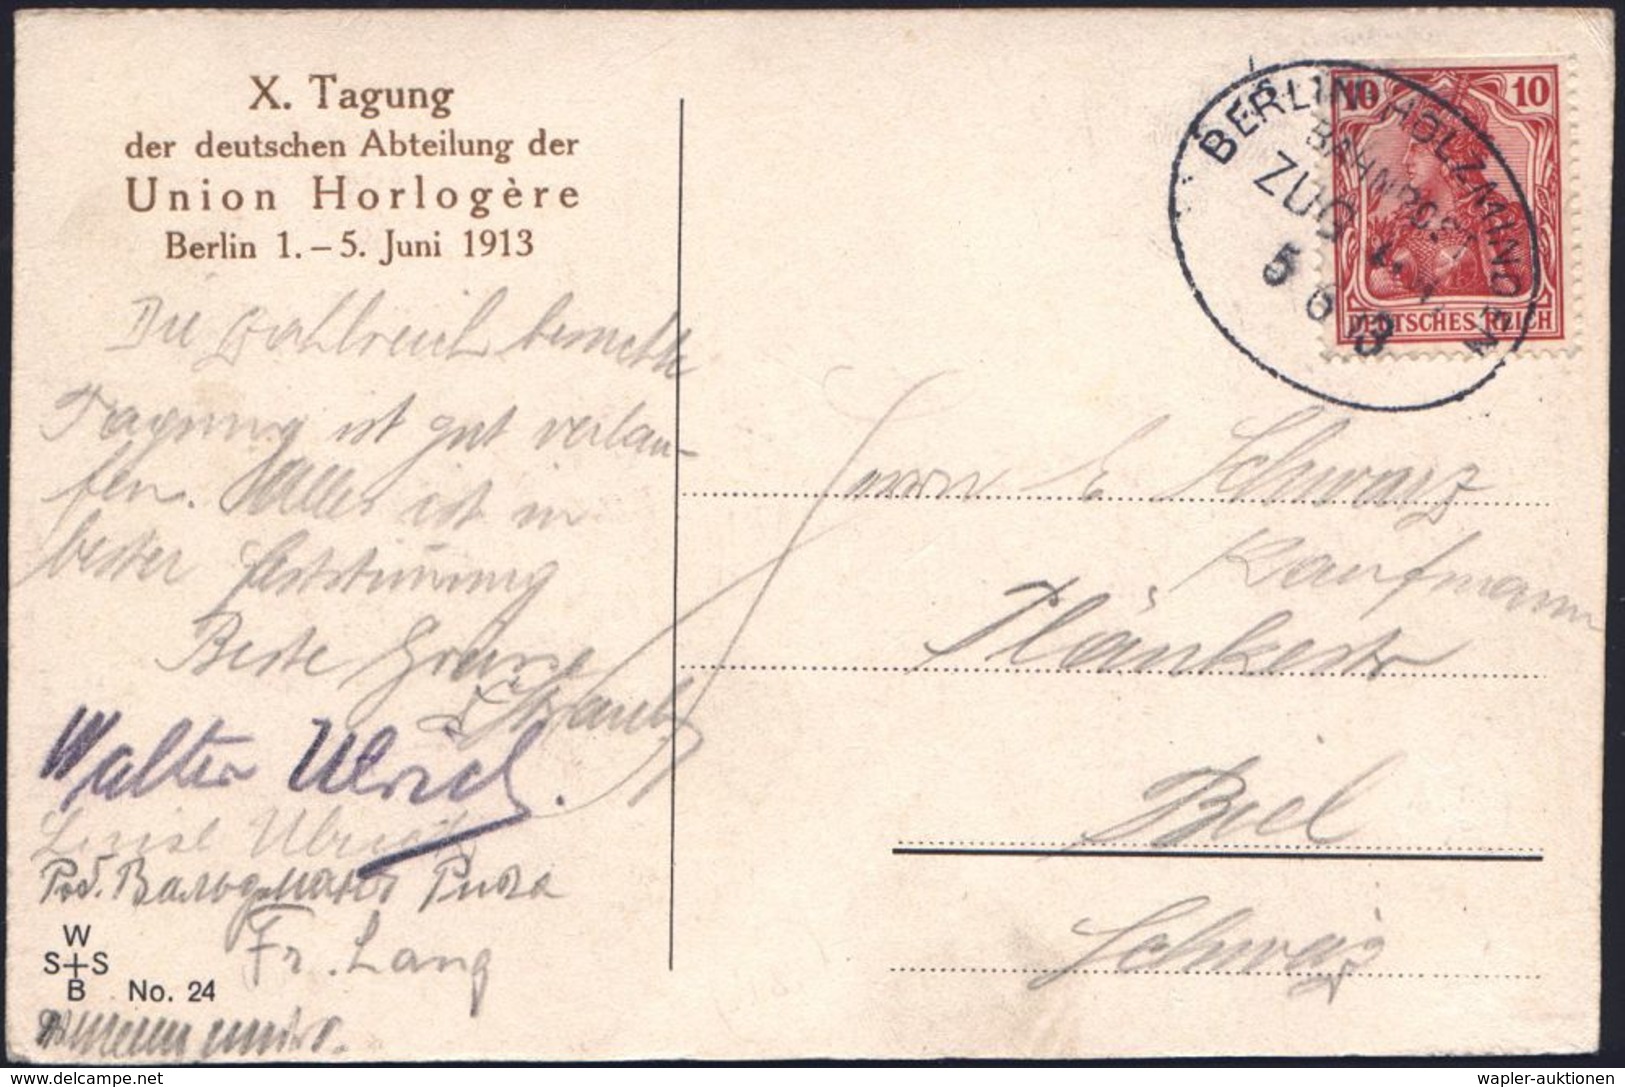 X. Tagung
der deutschen Abteilung der
Union Horlogère
Berlin 1.–5. Juni 1913
BERLIN HOLZMINDEN
BAHNPOST
ZUG
5 6 13
10 10
DEUTSCHES REICH
Die Zahlreich besuchte
Tagung ist gut verlau-
fen. Alles ist in
bester Feststimmung
Beste Grüsse
Walter Ulrich.
Ulrich
Fr. Lang
W
S+S
B No. 24
Herrn E Schwarz
Kaufmann
Plänkestr
Biel
Schweiz
wapler-auktionen